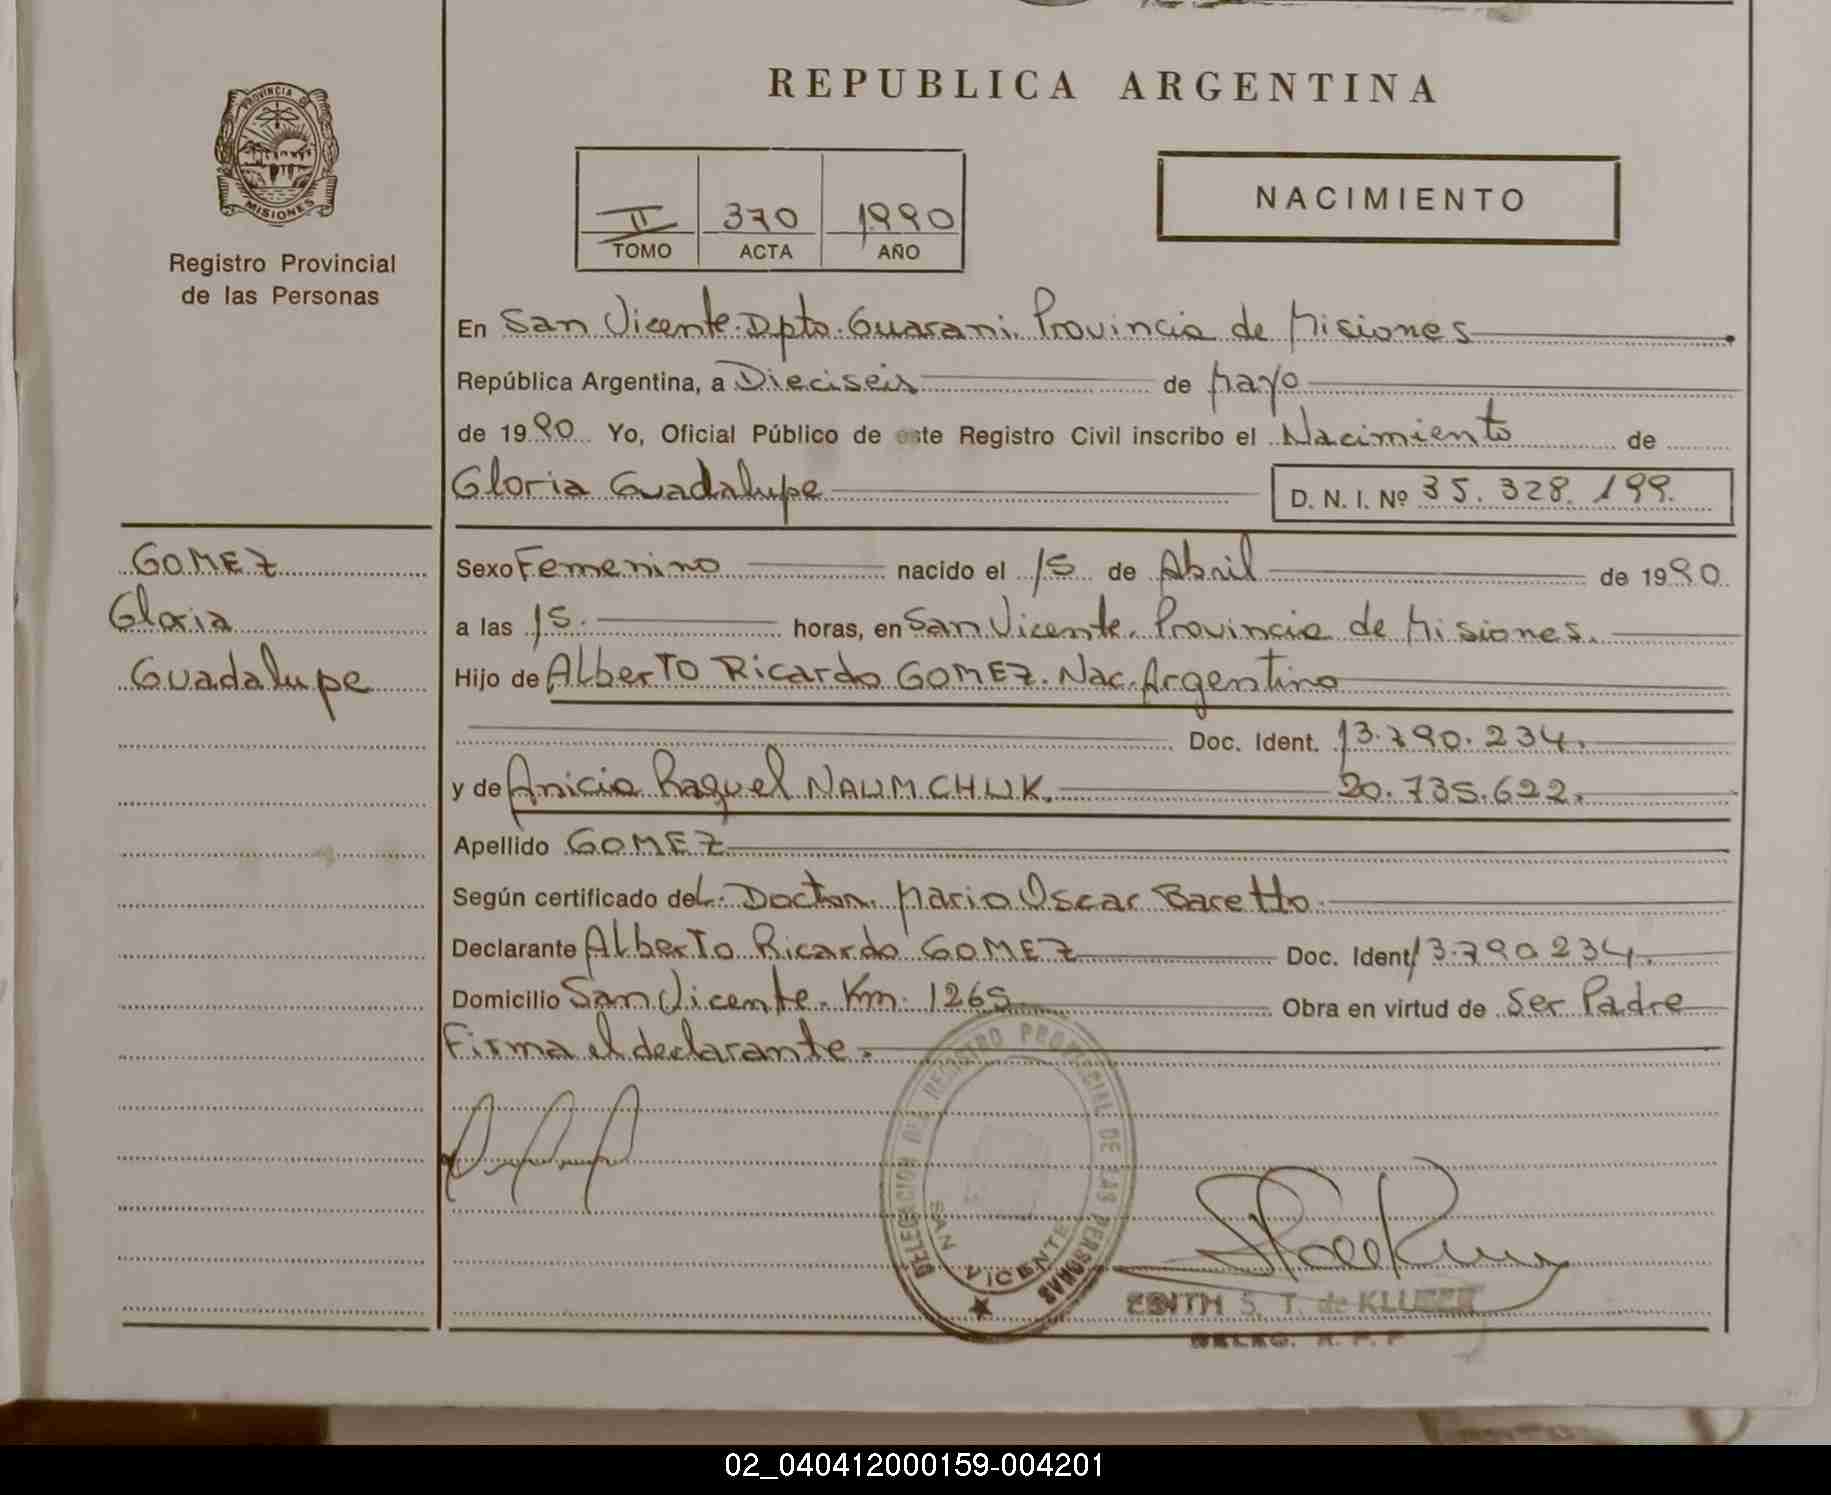 REPUBLICA ARGENTINA
PROVINCIA DE
MISIONES
Registro Provincial
de las Personas
II 370 1990
TOMO ACTA AÑO
NACIMIENTO
En San Vicente. Dpto. Guarani. Provincia de Misiones
República Argentina, a Dieciseis de Mayo
de 1990 Yo, Oficial Público de este Registro Civil inscribo el Nacimiento de
Gloria Guadalupe D. N. I. Nº 35.328.199.
GOMEZ
Gloria
Guadalupe
Sexo Femenino nacido el 15 de Abril de 1990
a las 15. horas, en San Vicente. Provincia de Misiones.
Hijo de Alberto Ricardo GOMEZ. Nac. Argentino
Doc. Ident. 13.790.234.
y de Anicia Raquel NAUMCHUK. 20.735.622.
Apellido GOMEZ
Según certificado del. Doctor. Mario Oscar Baretto.
Declarante Alberto Ricardo GOMEZ Doc. Ident 13.790.234.
Domicilio San Vicente. Km. 1265 Obra en virtud de Ser Padre
Firma el declarante.
DELEGACION DEL REGISTRO PROVINCIAL DE LAS PERSONAS
SAN VICENTE
EDITH S. T. de
DELEG. R. P. P
02_040412000159-004201